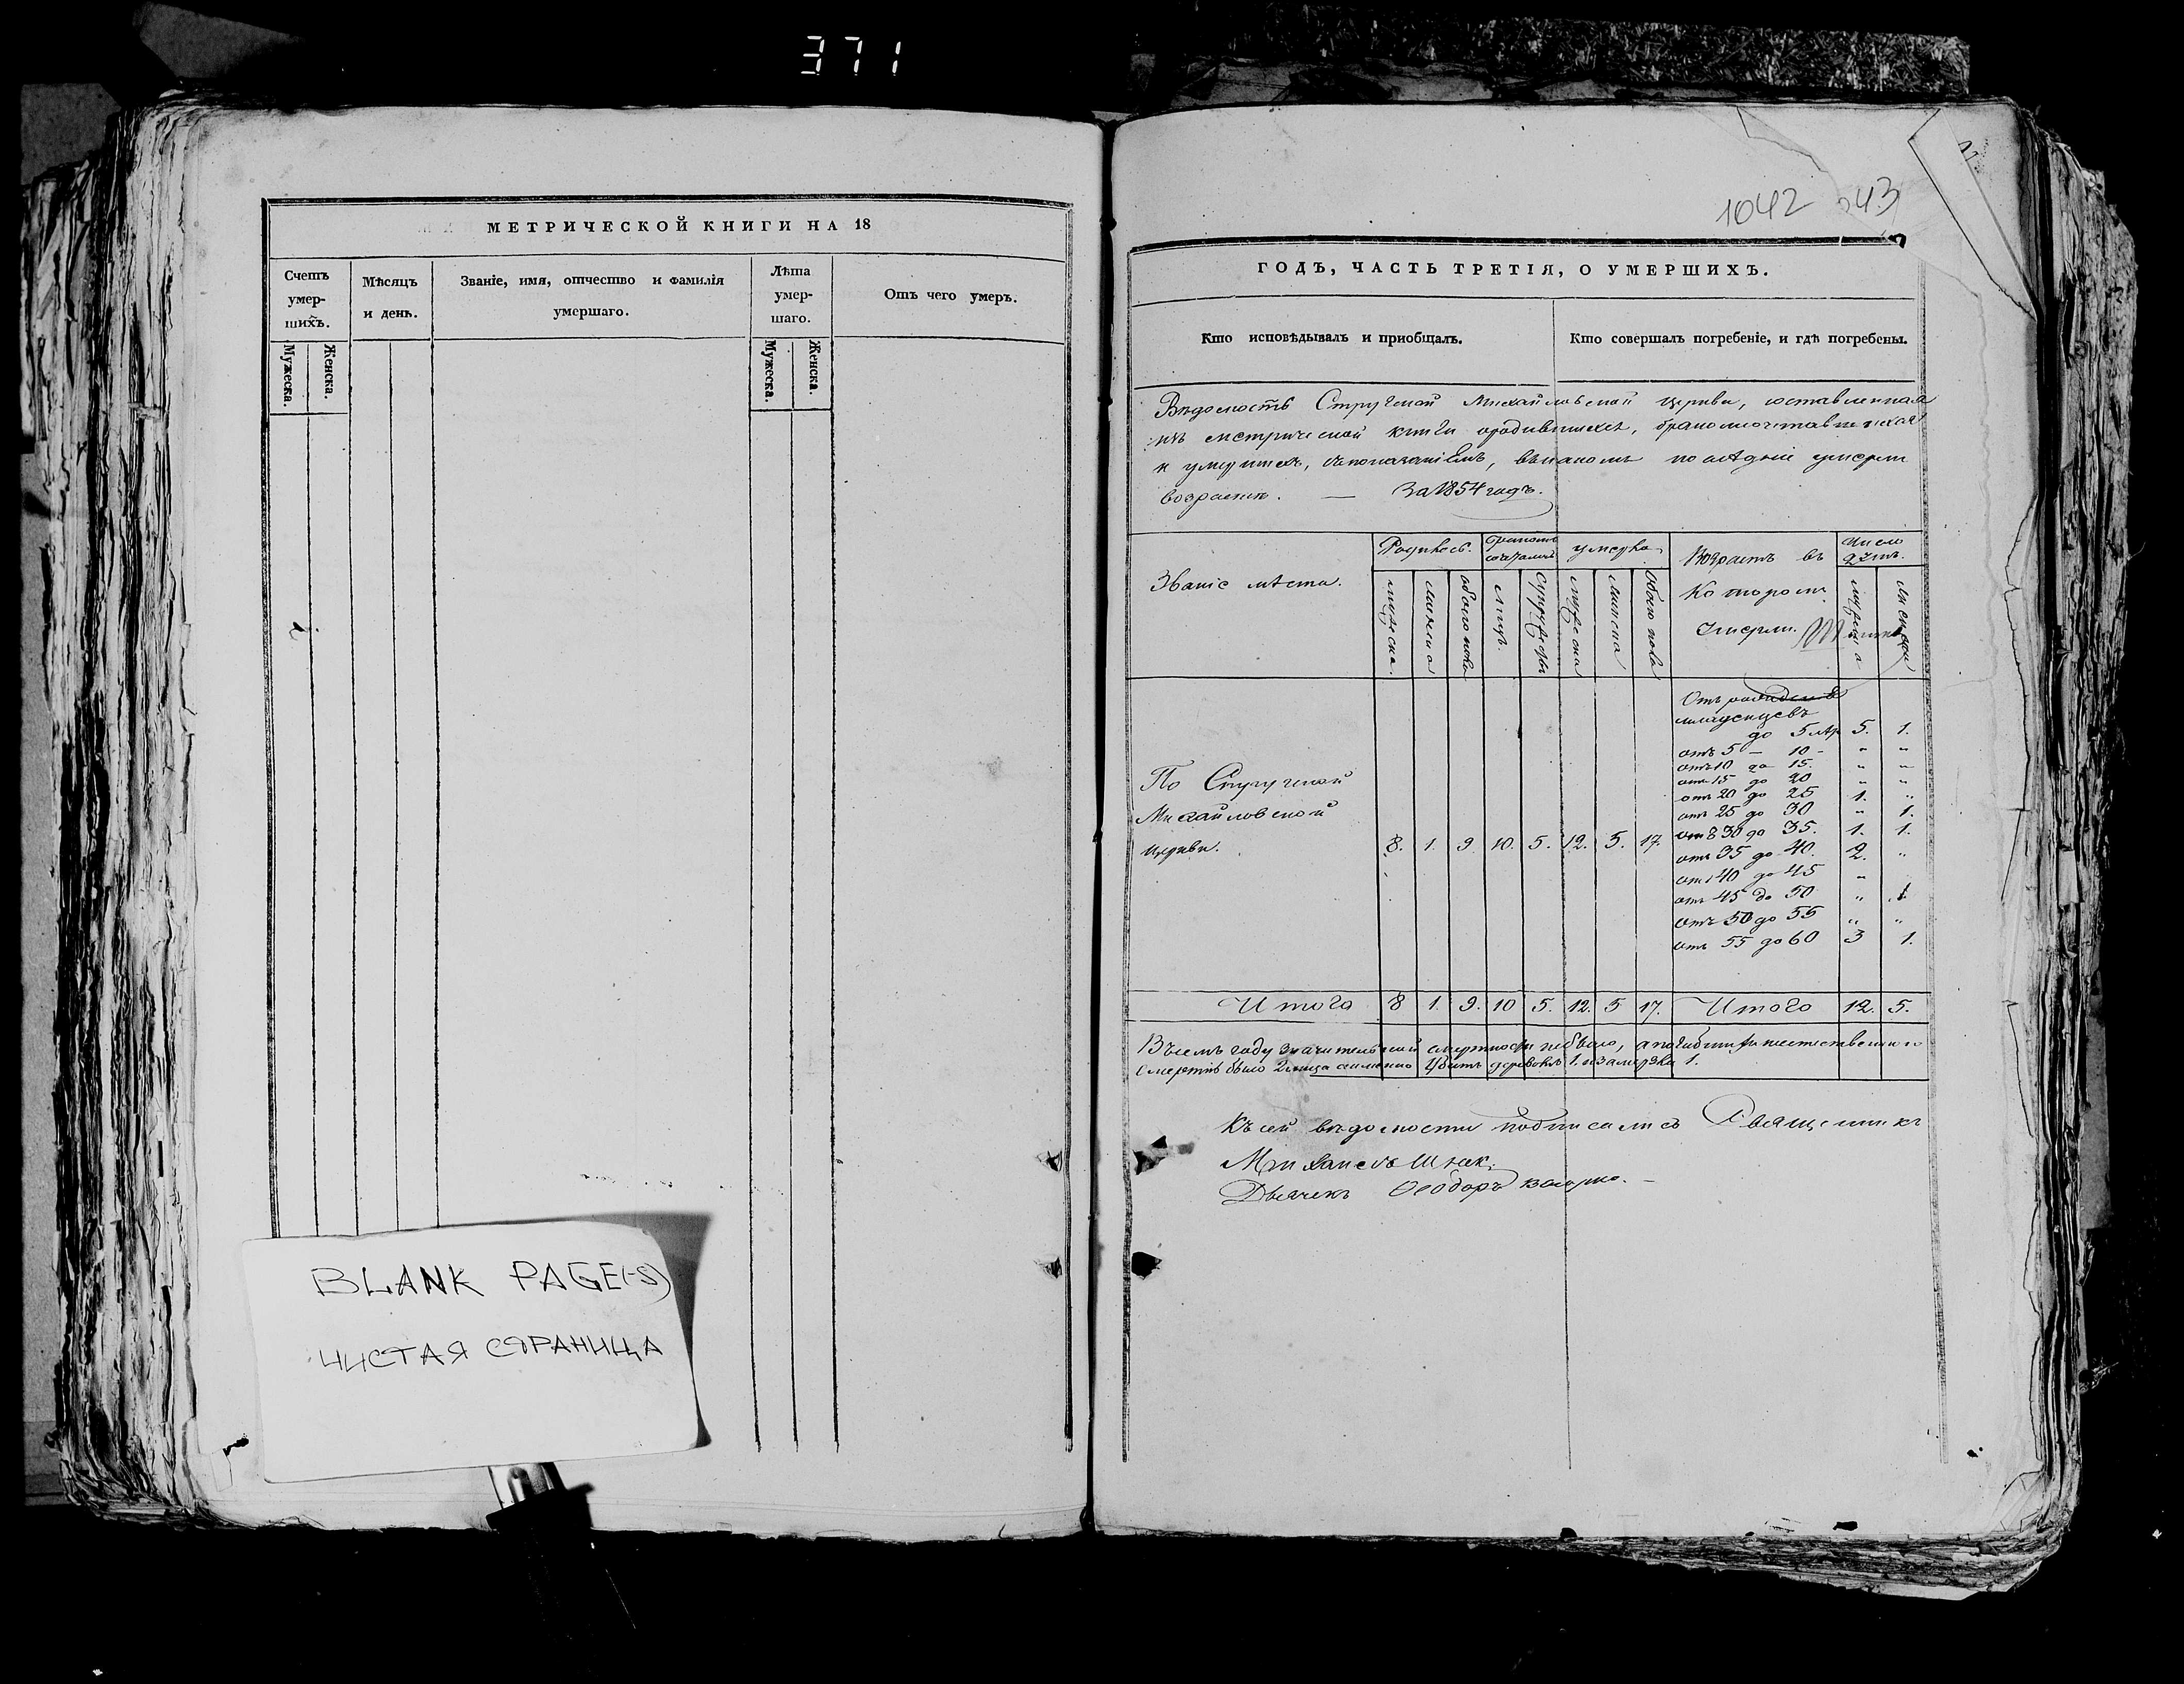 371
МЕТРИЧЕСКОЙ КНИГИ НА 18
Счетъ умер-шихъ.
Мѣсяцъ и день.
Званіе, имя, отчество и фамилія умершаго.
Лѣта умер-шаго.
Отъ чего умеръ.
Мужеска.
Женска.
Мужеска.
Женска.
BLANK PAGE(-S)
ЧИСТАЯ СТРАНИЦА
1042
43
ГОДЪ, ЧАСТЬ ТРЕТІЯ, О УМЕРШИХЪ.
Кто исповѣдывалъ и пріобщалъ.
Кто совершалъ погребеніе, и гдѣ погребены.
Вѣдомость Стружской Михайловской церкви, составленная
изъ метрической книги ородившихся, бракомсочетавшихся
и умершихъ, съпоказаніемъ, въкакомъ послѣдніе умерли
возрастѣ. — За 1854 годъ.
Званіе мѣста.
Родилось.
умерло
Возрастъ въ
Число
Которомъ
умерли.
мужеска
женска
обоего пола
лицъ.
мужеска
женска
обоего пола
женска
младенцевъ
до 5 5. 1.
отъ 5 — 10 - " "
отъ 10 до 15. " "
отъ 15 до 20 " "
отъ 20 до 25 1. "
отъ 25 до 30 " 1.
отъ 30 до 35. 1. 1.
отъ 35 до 40. 2. "
отъ 40 до 45 "
отъ 45 до 50 " 1.
отъ 50 до 55 " "
отъ 55 до 60 3 1.
По Стружской
Михайловской
церкви. 8. 1. 9. 10. 5. 12. 5. 17.
Итого 8 1. 9. 10 5. 12. 5 17. Итого 12. 5.
Въсемъ году значительной смертности небыло, а
смертію было 2 лица аименно Убитъ 1. изамерзла 1.
Къ сей вѣдомости подписались Священникъ
Михаилъ
Дьячекъ Ѳеодоръ